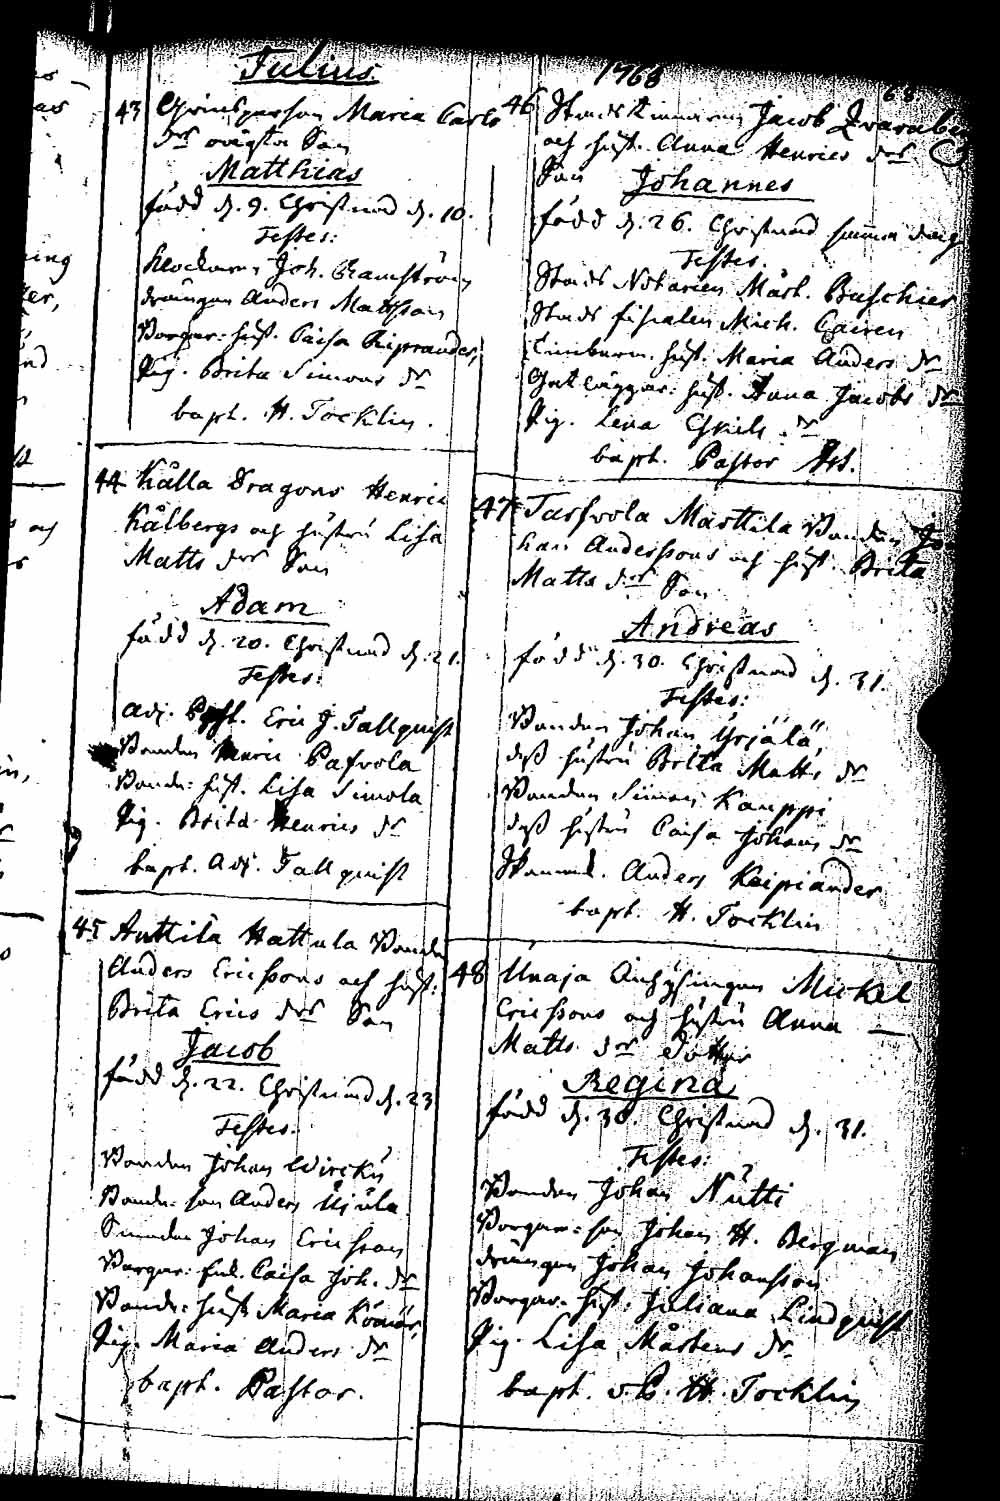 Julius
43 Maria Carls
drs oägta Son
Matthias
född d. 9. Christnad d. 10.
Testes:
klockaren Joh.
drängen Anders Mattsson
Borgar: hust. Caisa
Pig. Brita Simons dr
bapt. H. Tocklin.
44 Källa Dragons Henric
Kålbergs och hustru Lisa
Matts drs Son
Adam
född d. 20. Christnad d. 21.
Testes:
adj. Eric J. Tallquist
Bonden Pafvola
Bonde: hust. Lisa Simola
Pig. Brita Henrics dr
bapt. adj. Tallquist
45 Anttila Hattula Bonden
Anders Ericssons och hust:
Brita Erics drs Son
Jacob
född d. 22. Christnad d. 23
Testes:
Bonden Johan
Bonde: son Anders
Johan Ericsson
Borgar: Caisa Joh. dr
Bonde: hust. Maria
Pig. Maria Anders dr
bapt. Pastor.
1768
68.
46 Jacob
och hust. Anna Henrics drs
Son Johannes
född d. 26. Christnad samma dag
Testes.
Stads Notarien Mårt. Buschier
Stads fiscalen Mich. Cairen
hust. Maria Anders dr
hust. Anna Jacobs dr
Pig. Lena dr
bapt. Pastor
47 Tarfvola Marttila Bonden Jo
han Anderssons och hust. Brita
Matts drs Son
Andreas
född d. 30. Christnad d. 31.
Testes:
Bonden Johan Yrjälä,
dess hustru Brita Matts dr
Bonden Simon Kauppi
dess hustru Caisa Johans dr
Anders Keipiander
bapt. H. Tocklin
48 Unaja Mickel
Ericssons och hustru Anna
Matts drs dotter
Regina
född d. 30. Christnad d. 31.
Testes:
Bonden Johan Nutti
Borgare: son Johan H. Bergman
drängen Johan Johansson
Borgar. hust. Juliana Lindquist
Pig. Lisa Mårtens dr.
bapt. v.P. H. Tocklin